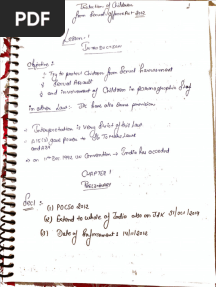 PDF
Protection of Children
from Sexual Offences Act 2012
2
Lesson - 1
Introduction
Objective :
Try to protect Children from Sexual Harassment
Sexual Assault
and involvement of Children in pornographic
in other Law :- We have also some provision
Interpretation is very brief of this Law
on 11th Dec 1992 UN Convention → India has acceded
CHAPTER 1
Preliminary
Sec 1 :
(1) POCSO 2012
(2) Extend to whole of India also on J&K 31/oct/2019
(3) Date of Enforcement : 14/11/2012